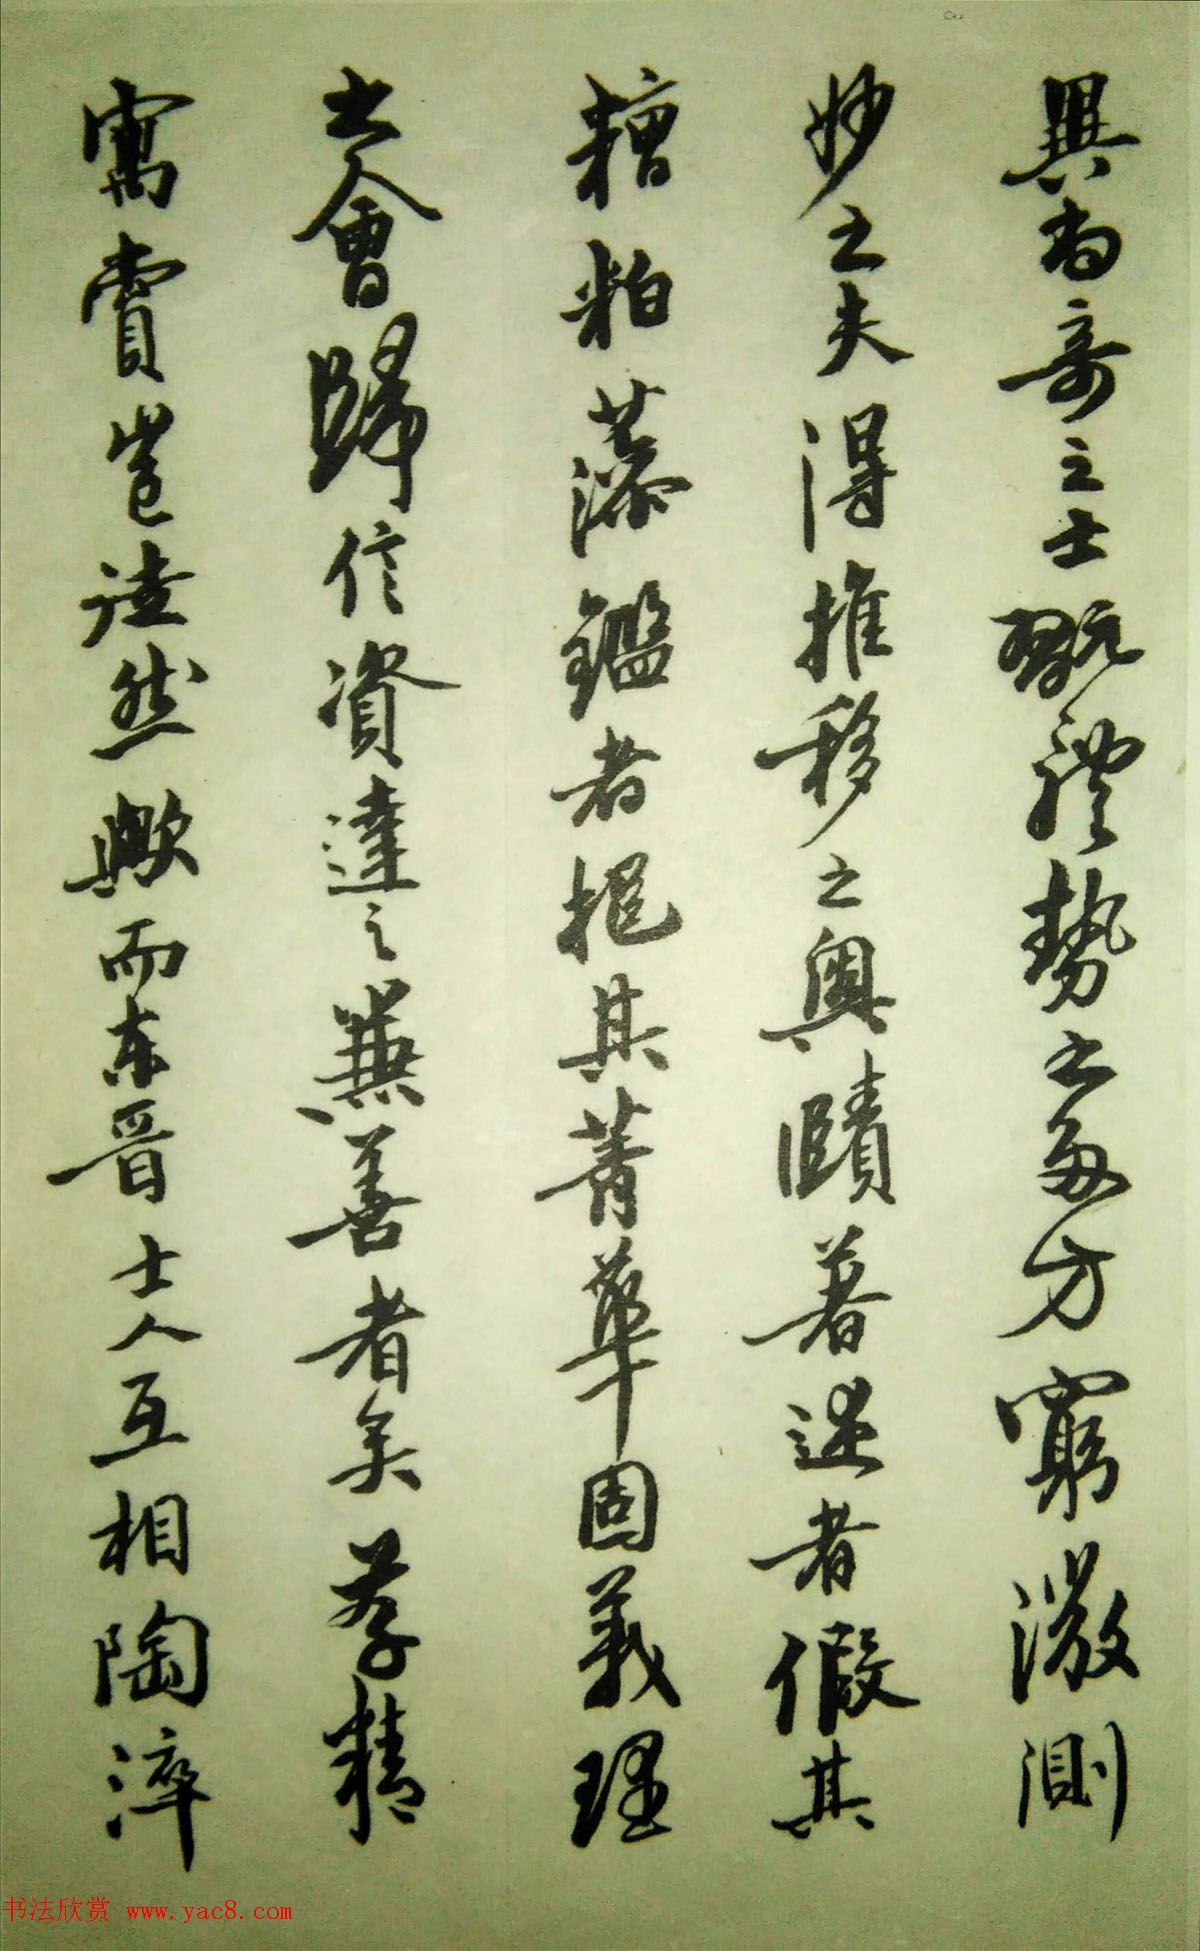 異尚奇之士翫體勢之多方窮微測
妙之夫得推移之奥賾著述者假其
糟粕藻鑑者挹其菁華固義理
之會歸信資達之兼善者矣存精
寓賞豈徒然歟而东晋士人互相陶淬
书法欣赏 www.yac8.com